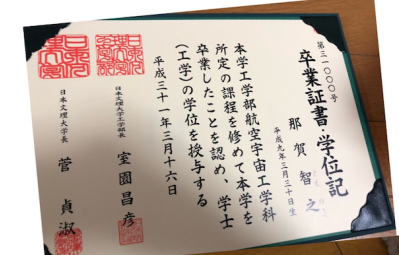 第三一〇〇〇号
卒業証書・学位記
那賀智之
平成九年三月三十日生
本学工学部航空宇宙工学科
所定の課程を修めて本学を
卒業したことを認め、学士
(工学)の学位を授与する
平成三十一年三月十六日
日本文理大学工学部長
室園昌彦
日本文理大学長
菅貞淑